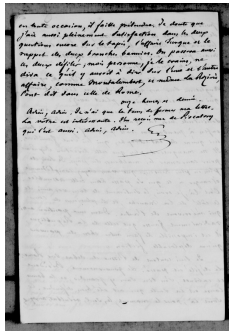 en toute occasion, il faille prétendre. Je doute que
j'aie aussi pleinement satisfaction dans les deux
questions encore sur le tapis, l'affaire turque et le
rappel des deux
les deux défilés, moi personne, je le crains, ne
dira ce qu'il y aurait à dire sur l'une et l'autre
affaire, comme et même la
l'ont dit dans celle de Rome.
onze heures et demie.
Adieu, Adieu. Je n'ai que le tems de fermer ma lettre.
La vôtre est intéressante. J'en reçois une de
qui l'est aussi. Adieu, adieu.